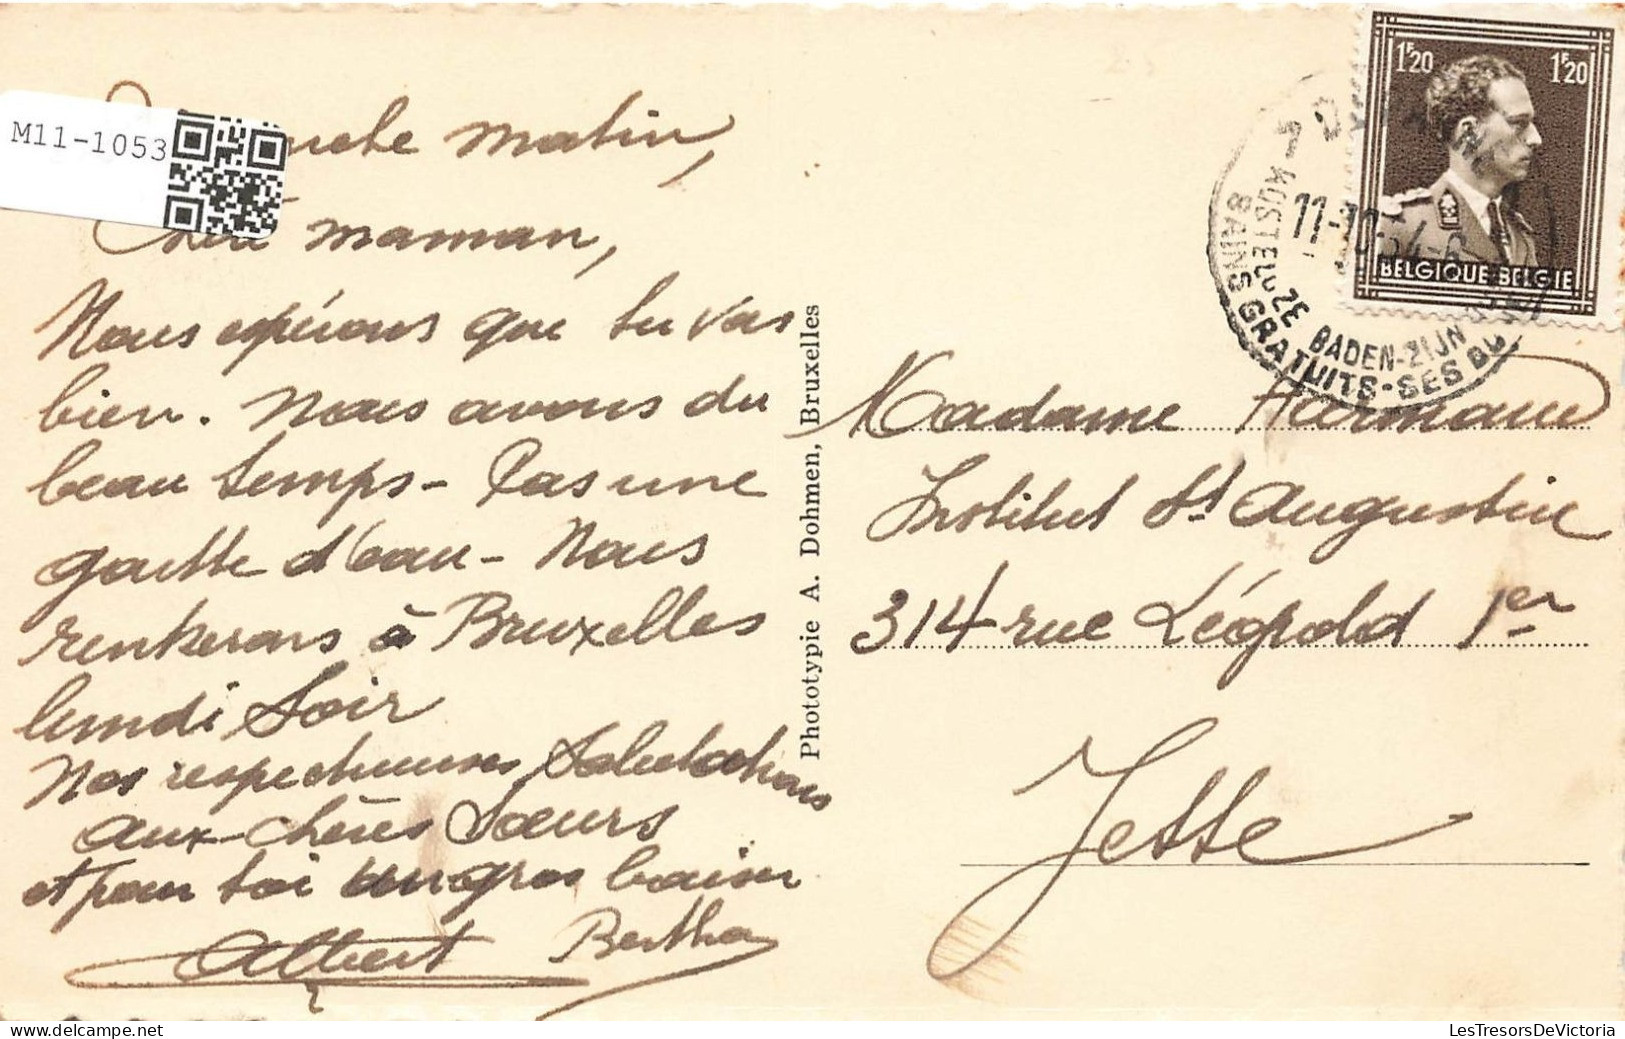 M11-1053
matin,
Chère maman,
Nous espérons que tu vas
bien. Nous avons du
beau temps - Pas une
goutte d'eau - Nous
renterons à Bruxelles
lundi soir
Nos respectueuses salutations
aux chères Sœurs
et pour toi un gros baiser
Albert Bertha
Phototypie A. Dohmen, Bruxelles
1F20 1F20
BELGIQUE-BELGIE
11-10-54
KOSTELOZE BADEN-ZIJN
BAINS GRATUITS-SES DU
Madame
Institut St Augustin
314 rue Léopold 1er
Jette
LesTresorsDeVictoria.com